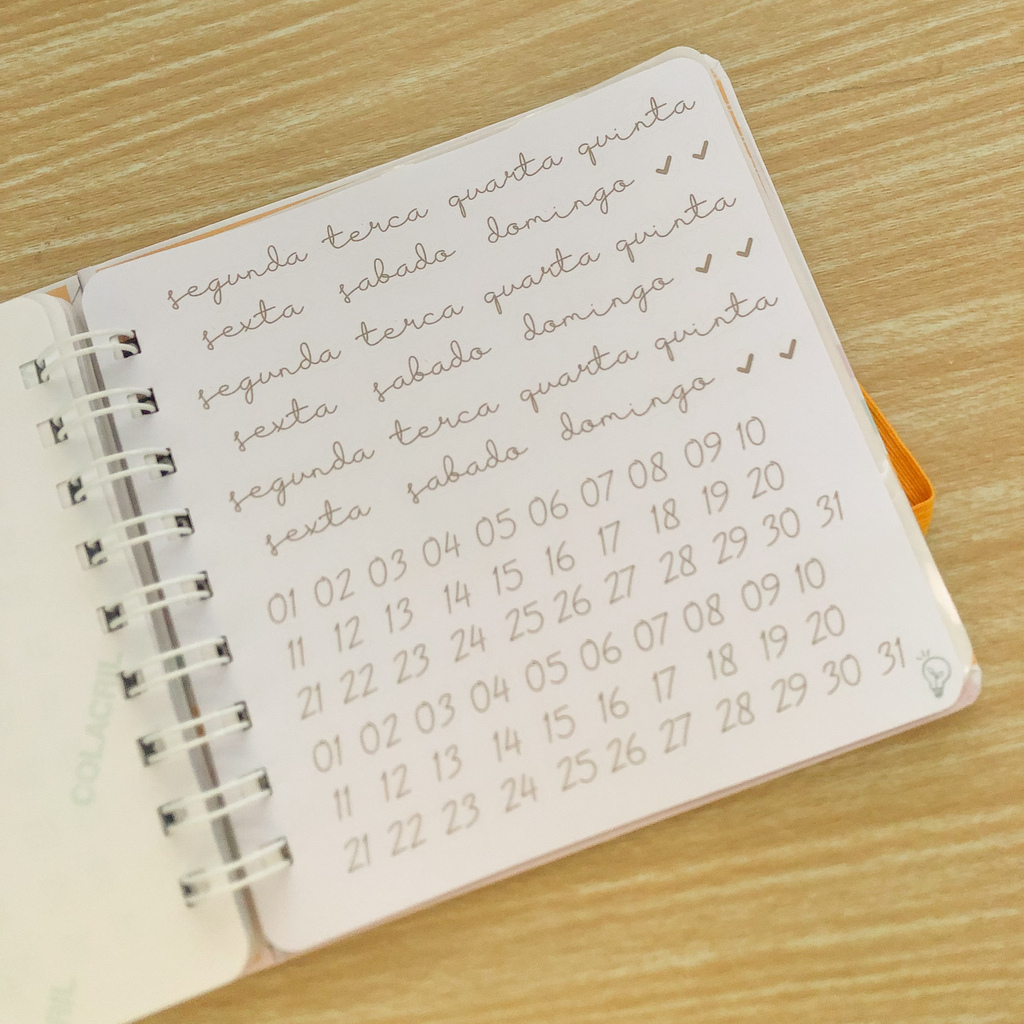 segunda terca quarta quinta
sexta sabado domingo ✓ ✓
segunda terca quarta quinta
sexta sabado domingo ✓ ✓
segunda terca quarta quinta
sexta sabado domingo ✓ ✓
01 02 03 04 05 06 07 08 09 10
11 12 13 14 15 16 17 18 19 20
21 22 23 24 25 26 27 28 29 30 31
01 02 03 04 05 06 07 08 09 10
11 12 13 14 15 16 17 18 19 20
21 22 23 24 25 26 27 28 29 30 31
COLACRIL